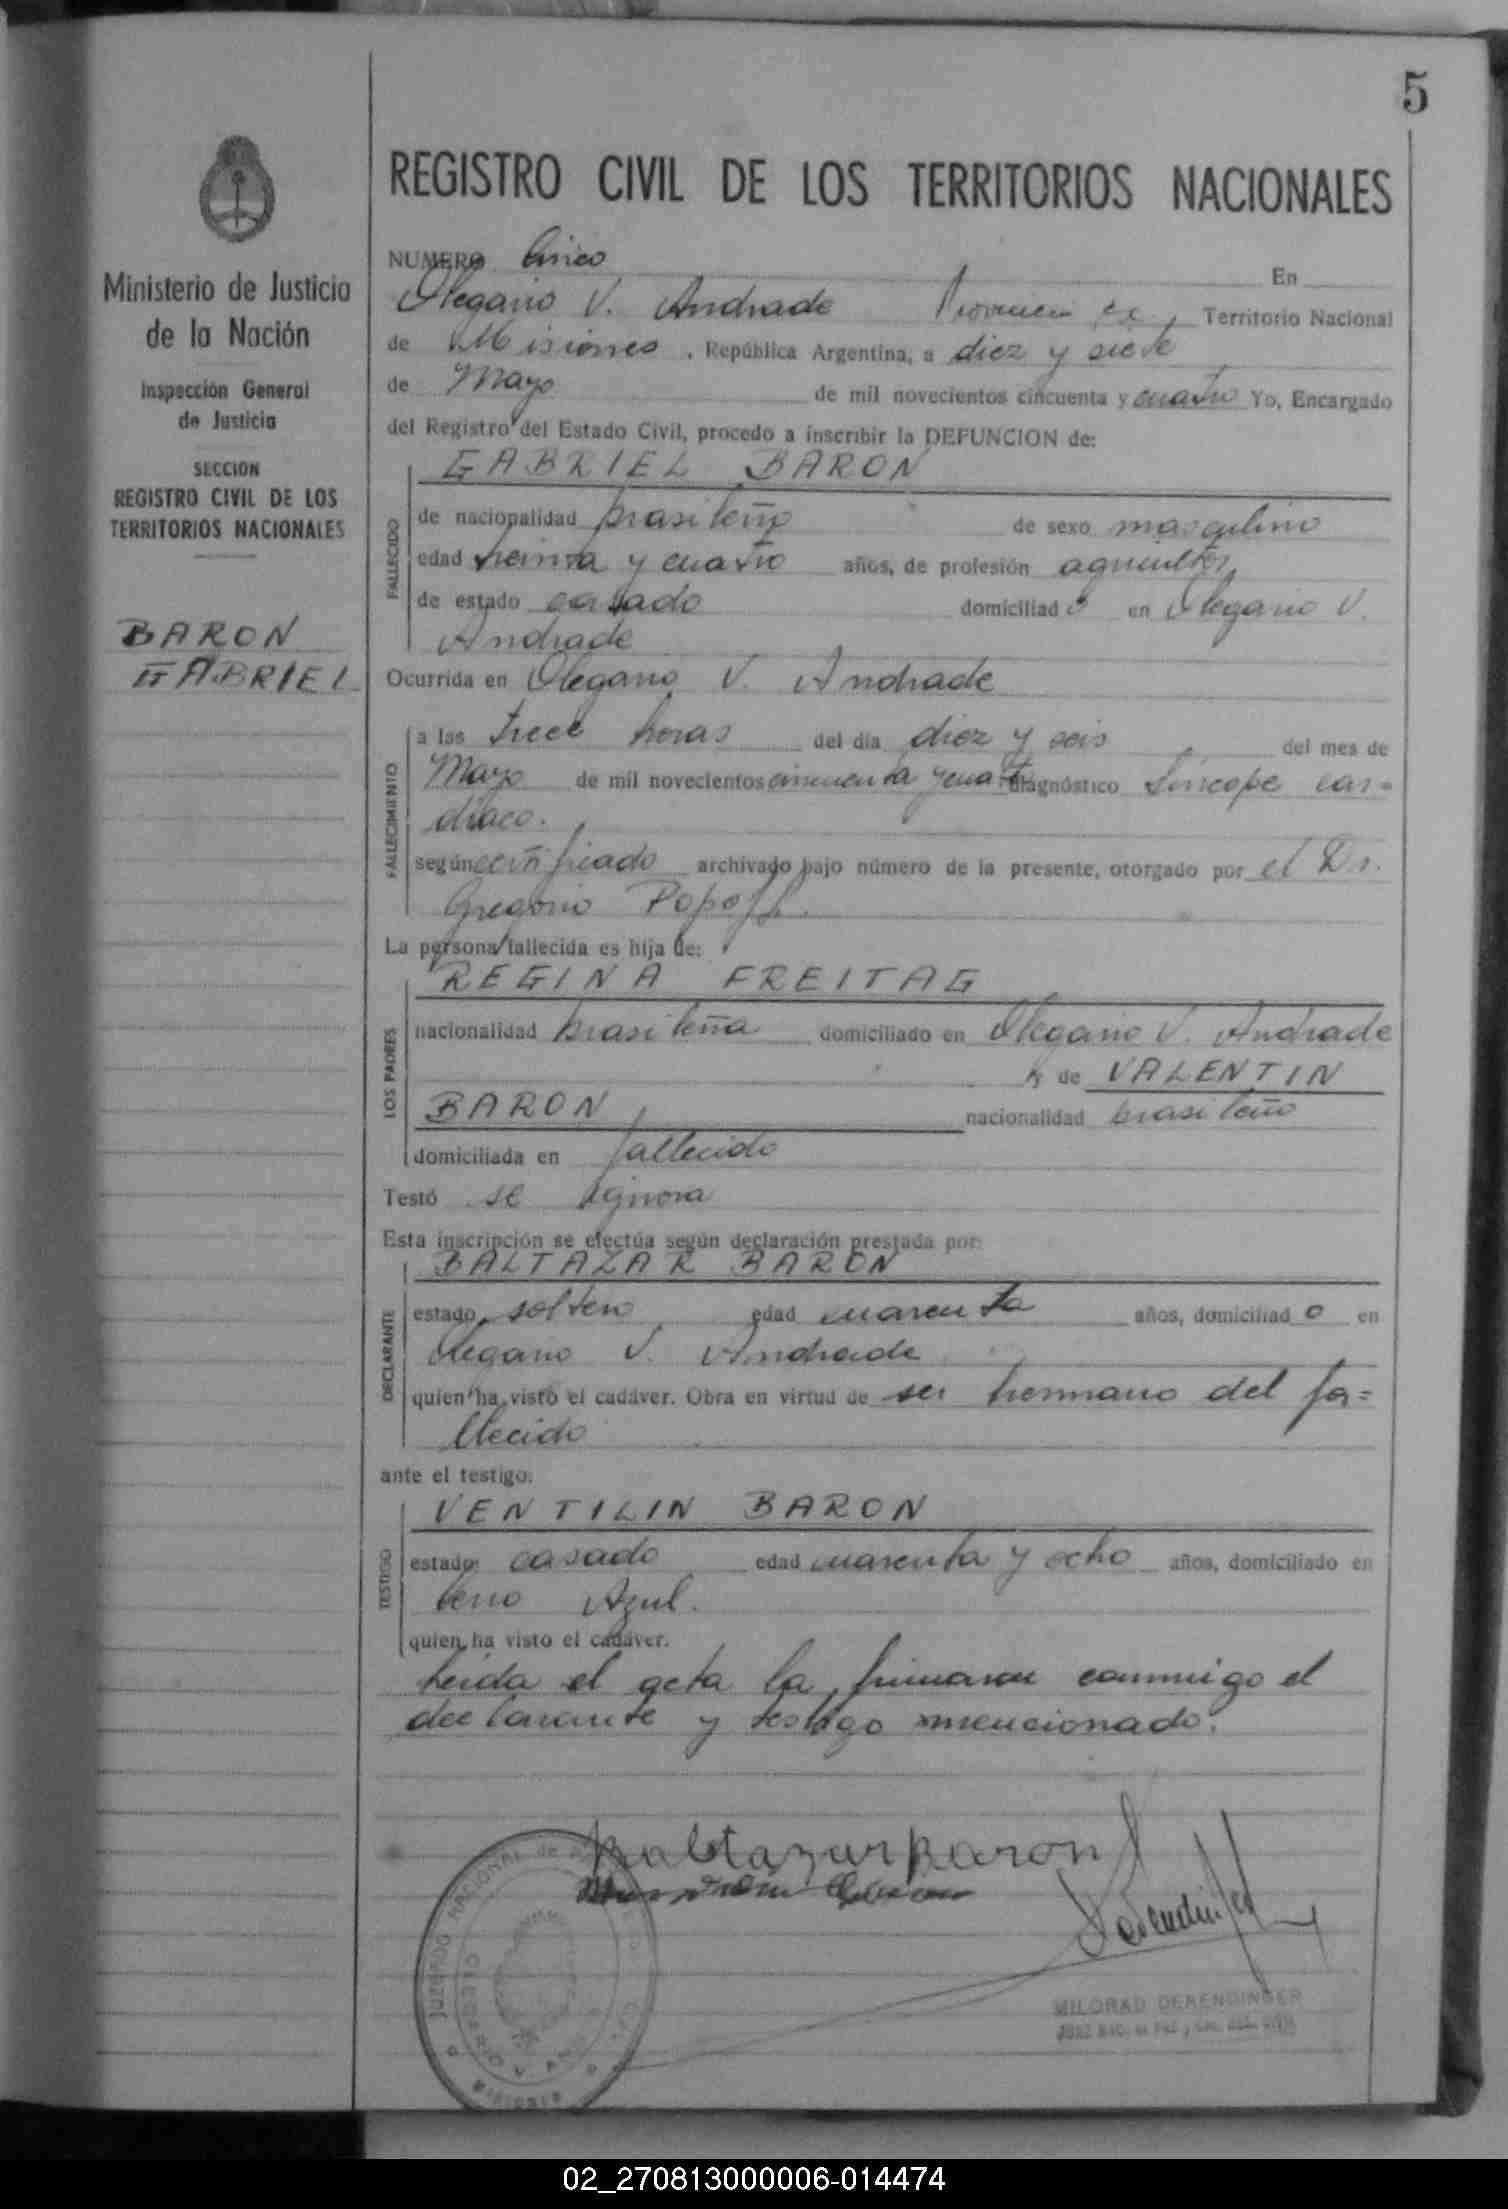 5
REGISTRO CIVIL DE LOS TERRITORIOS NACIONALES
Ministerio de Justicia
de la Nación
Inspección General
de Justicia
SECCION
REGISTRO CIVIL DE LOS
TERRITORIOS NACIONALES
BARON
GABRIEL
NUMERO Cinco En
Olegario V. Andrade Provincia ex Territorio Nacional
de Misiones, República Argentina, a diez y siete
de Mayo de mil novecientos cincuenta y cuatro Yo, Encargado
del Registro del Estado Civil, procedo a inscribir la DEFUNCION de:
FALLECIDO
GABRIEL BARON
de nacionalidad brasileño de sexo masculino
edad treinta y cuatro años, de profesión agricultor
de estado casado domiciliado en Olegario V.
Andrade
Ocurrida en Olegario V. Andrade
FALLECIMIENTO
a las trece horas del día diez y seis del mes de
Mayo de mil novecientos cincuenta y cuat diagnóstico Síncope car=
diaco.
según certificado archivado bajo número de la presente, otorgado por el Dr.
Gregorio Popoff.
La persona fallecida es hija de:
LOS PADRES
REGINA FREITAG
nacionalidad brasileña domiciliado en Olegario V. Andrade
y de VALENTIN
BARON nacionalidad brasileño
domiciliada en fallecido
Testó se ignora
Esta inscripción se efectúa según declaración prestada por:
DECLARANTE
BALTAZAR BARON
estado soltero edad cuarenta años, domiciliado en
Olegario V. Andrade
quien ha visto el cadáver. Obra en virtud de ser hermano del fa=
llecido
ante el testigo:
TESTIGO
VENTILIN BARON
estado casado edad cuarenta y ocho años, domiciliado en
Cerro Azul.
quien ha visto el cadáver.
Leida el acta la firmaron conmigo el
declarante y testigo mencionado.
Baltazar Baron
JUZGADO NACIONAL de
MILORAD DERENDINGER
02_270813000006-014474